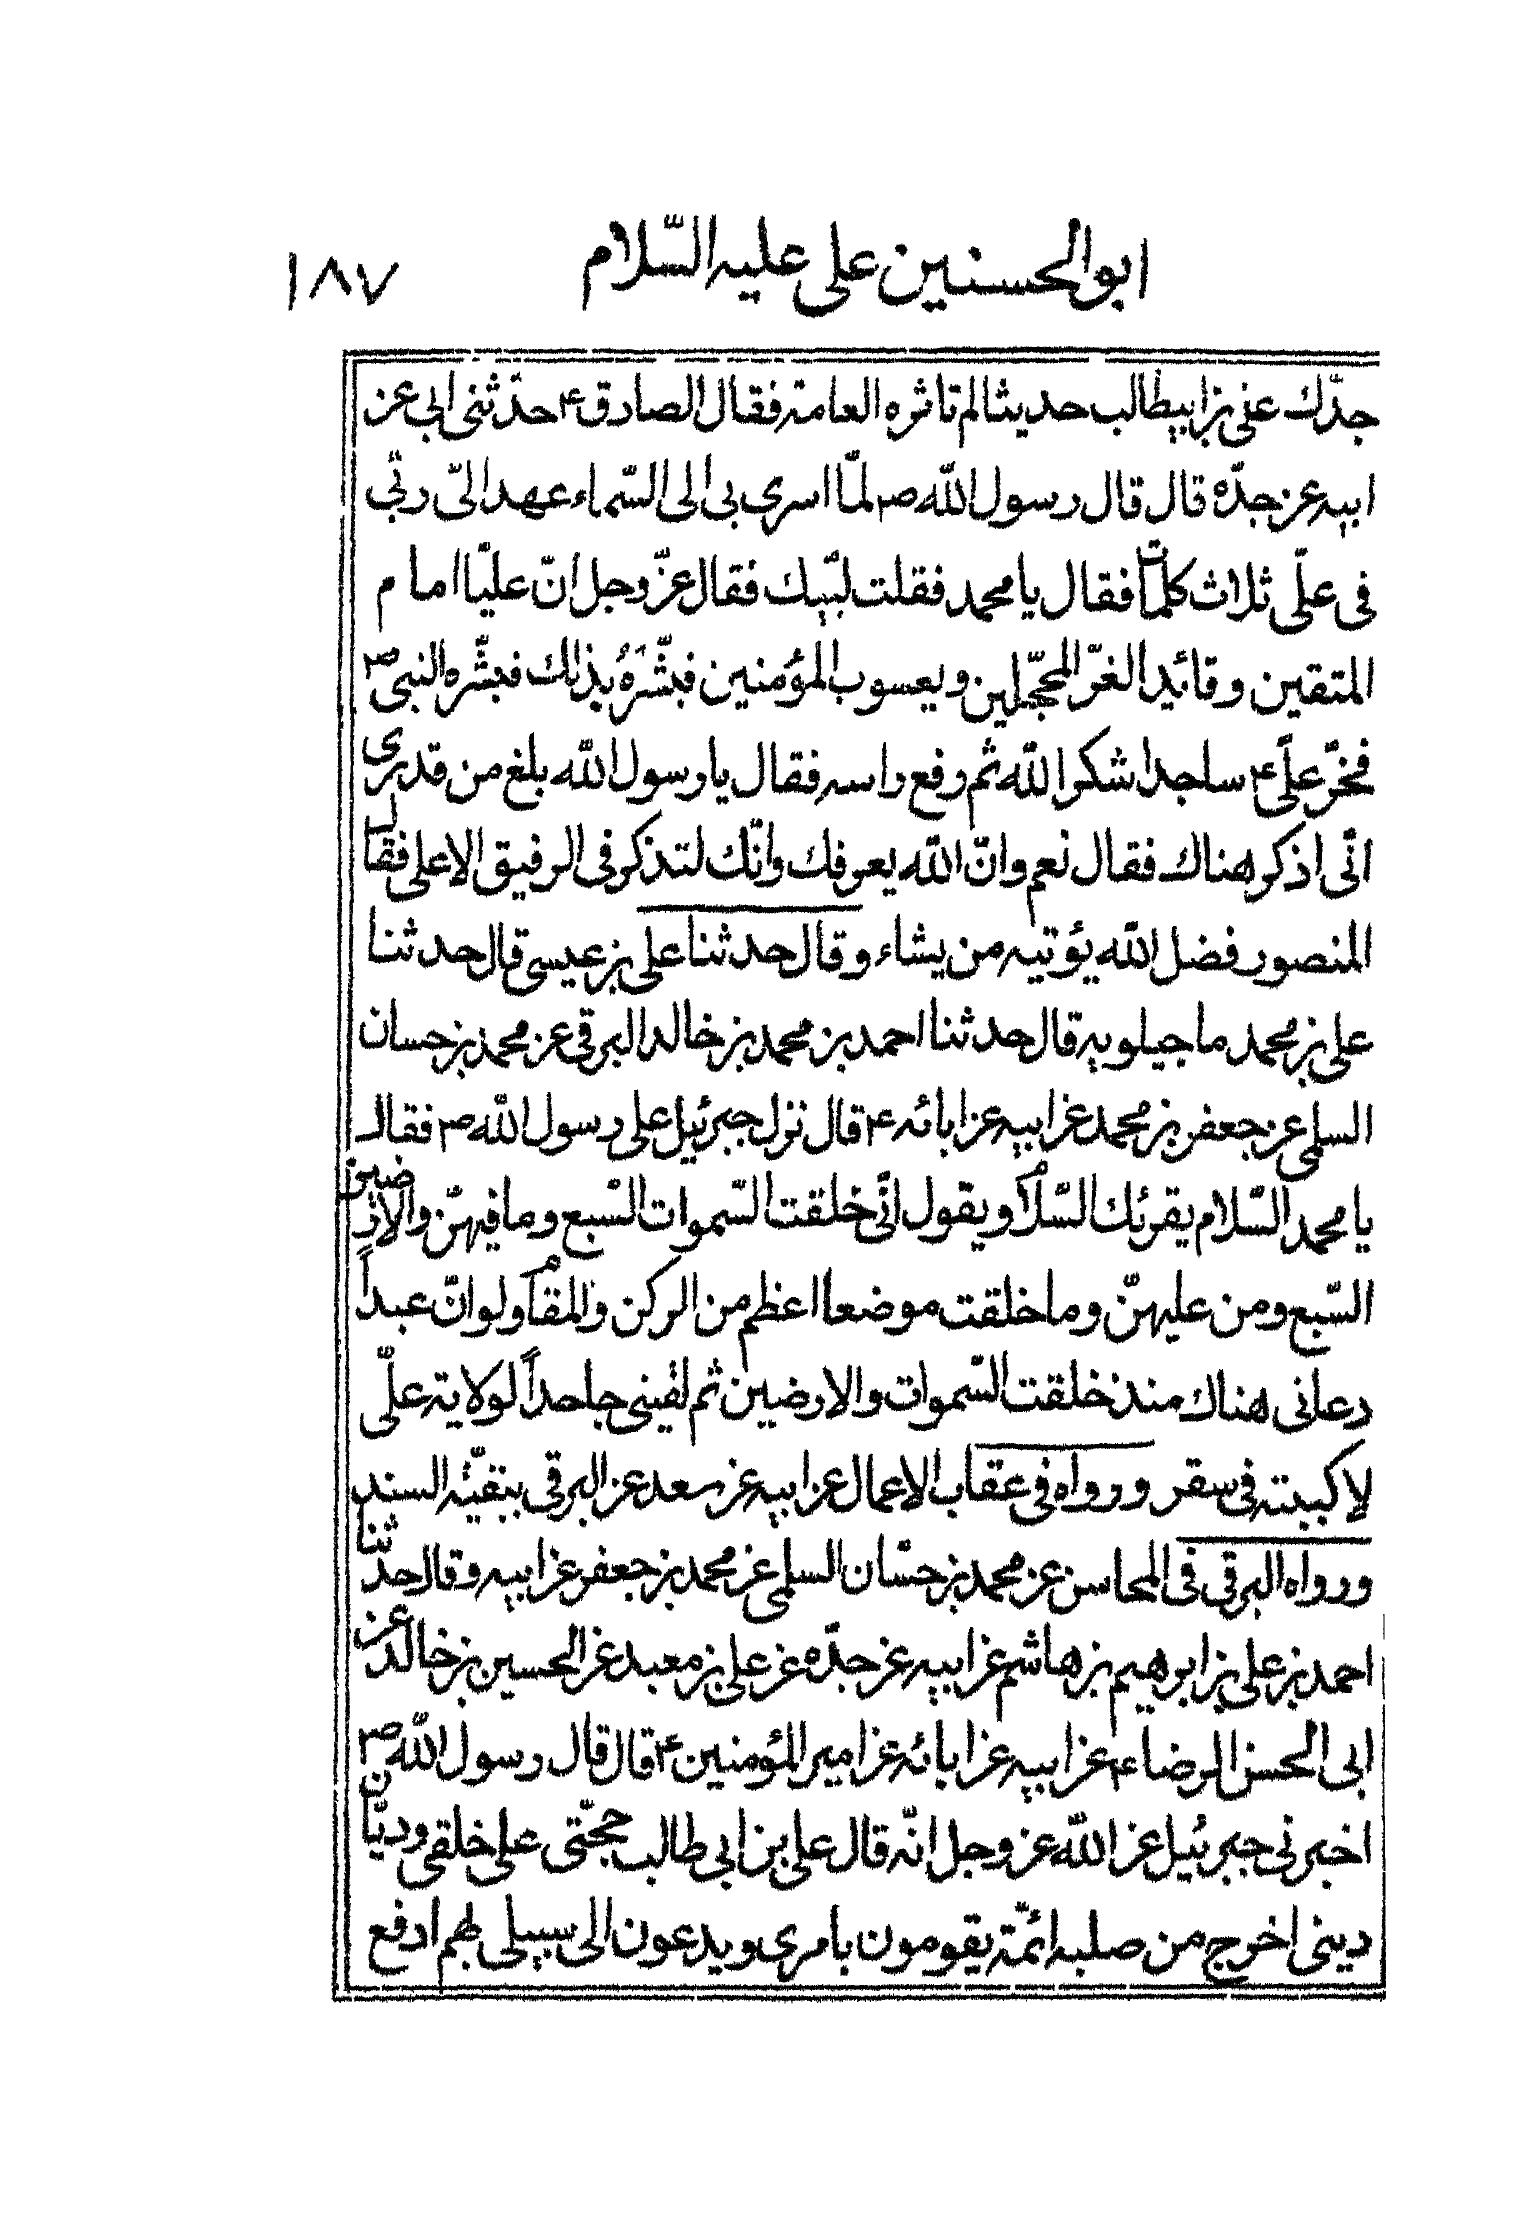 ابوالحسنين علی عليه السّلام ١٨٧
جدّك علی بن ابيطالب حديثا لم تاثره العامة فقال الصادق ع حدّثنی ابی عن
ابيه عن جدّه قال قال رسول الله ص لمّا اسری بی الی السّماء عهد الیّ ربّی
فی علیّ ثلاث كلمات فقال يا محمد فقلت لبّيك فقال عزّ وجل انّ عليّا امام
المتقين وقائد الغرّ المحجّلين ويعسوب المؤمنين فبشّرَهُ بذالك فبشّره النبی ص
فخرّ علیّ ع ساجدا شكرا لله ثم رفع راسه فقال يا رسول الله بلغ من قدری
انّی اذكر هناك فقال نعم وانّ الله يعرفك وانّك لتذكر فی الرفيق الاعلی فقال
المنصور فضل الله يؤتيه من يشاء وقال حدثنا علی بن عيسی قال حدثنا
علی بن محمد ماجيلويه قال حدثنا احمد بن محمد بن خالد البرقی عن محمد بن حسان
السلمی عن جعفر بن محمد عن ابيه عن ابائه ع قال نزل جبرئيل علی رسول الله ص فقال
يا محمد السّلام يقرئك السّلام ويقول انّی خلقت السّموات السّبع وما فيهنّ والارضين
السّبع ومن عليهنّ وما خلقت موضعا اعظم من الركن والمقام ولو انّ عبداً
دعانی هناك منذ خلقت السّموات والارضين ثم لقينی جاحداً لولاية علیّ
لاكببته فی سقر ورواه فی عقاب الاعمال عن ابيه عن سعد عن البرقی ببقيّة السند
ورواه البرقی فی المحاسن عن محمد بن حسّان السلمی عن محمد بن جعفر عن ابيه وقال حدثنا
احمد بن علی بن ابرهيم بن هاشم عن ابيه عن جدّه عن علی بن معبد عن الحسين بن خالد عن
ابی الحسن الرضا ع عن ابيه عن ابائه عن امير المؤمنين ع قال قال رسول الله ص
اخبرنی جبرئيل عن الله عز وجل انّه قال علی بن ابی طالب حجّتی علی خلقی وديّان
دينی اخرج من صلبه ائمّة يقومون بامری ويدعون الی سبيلی بهم ادفع